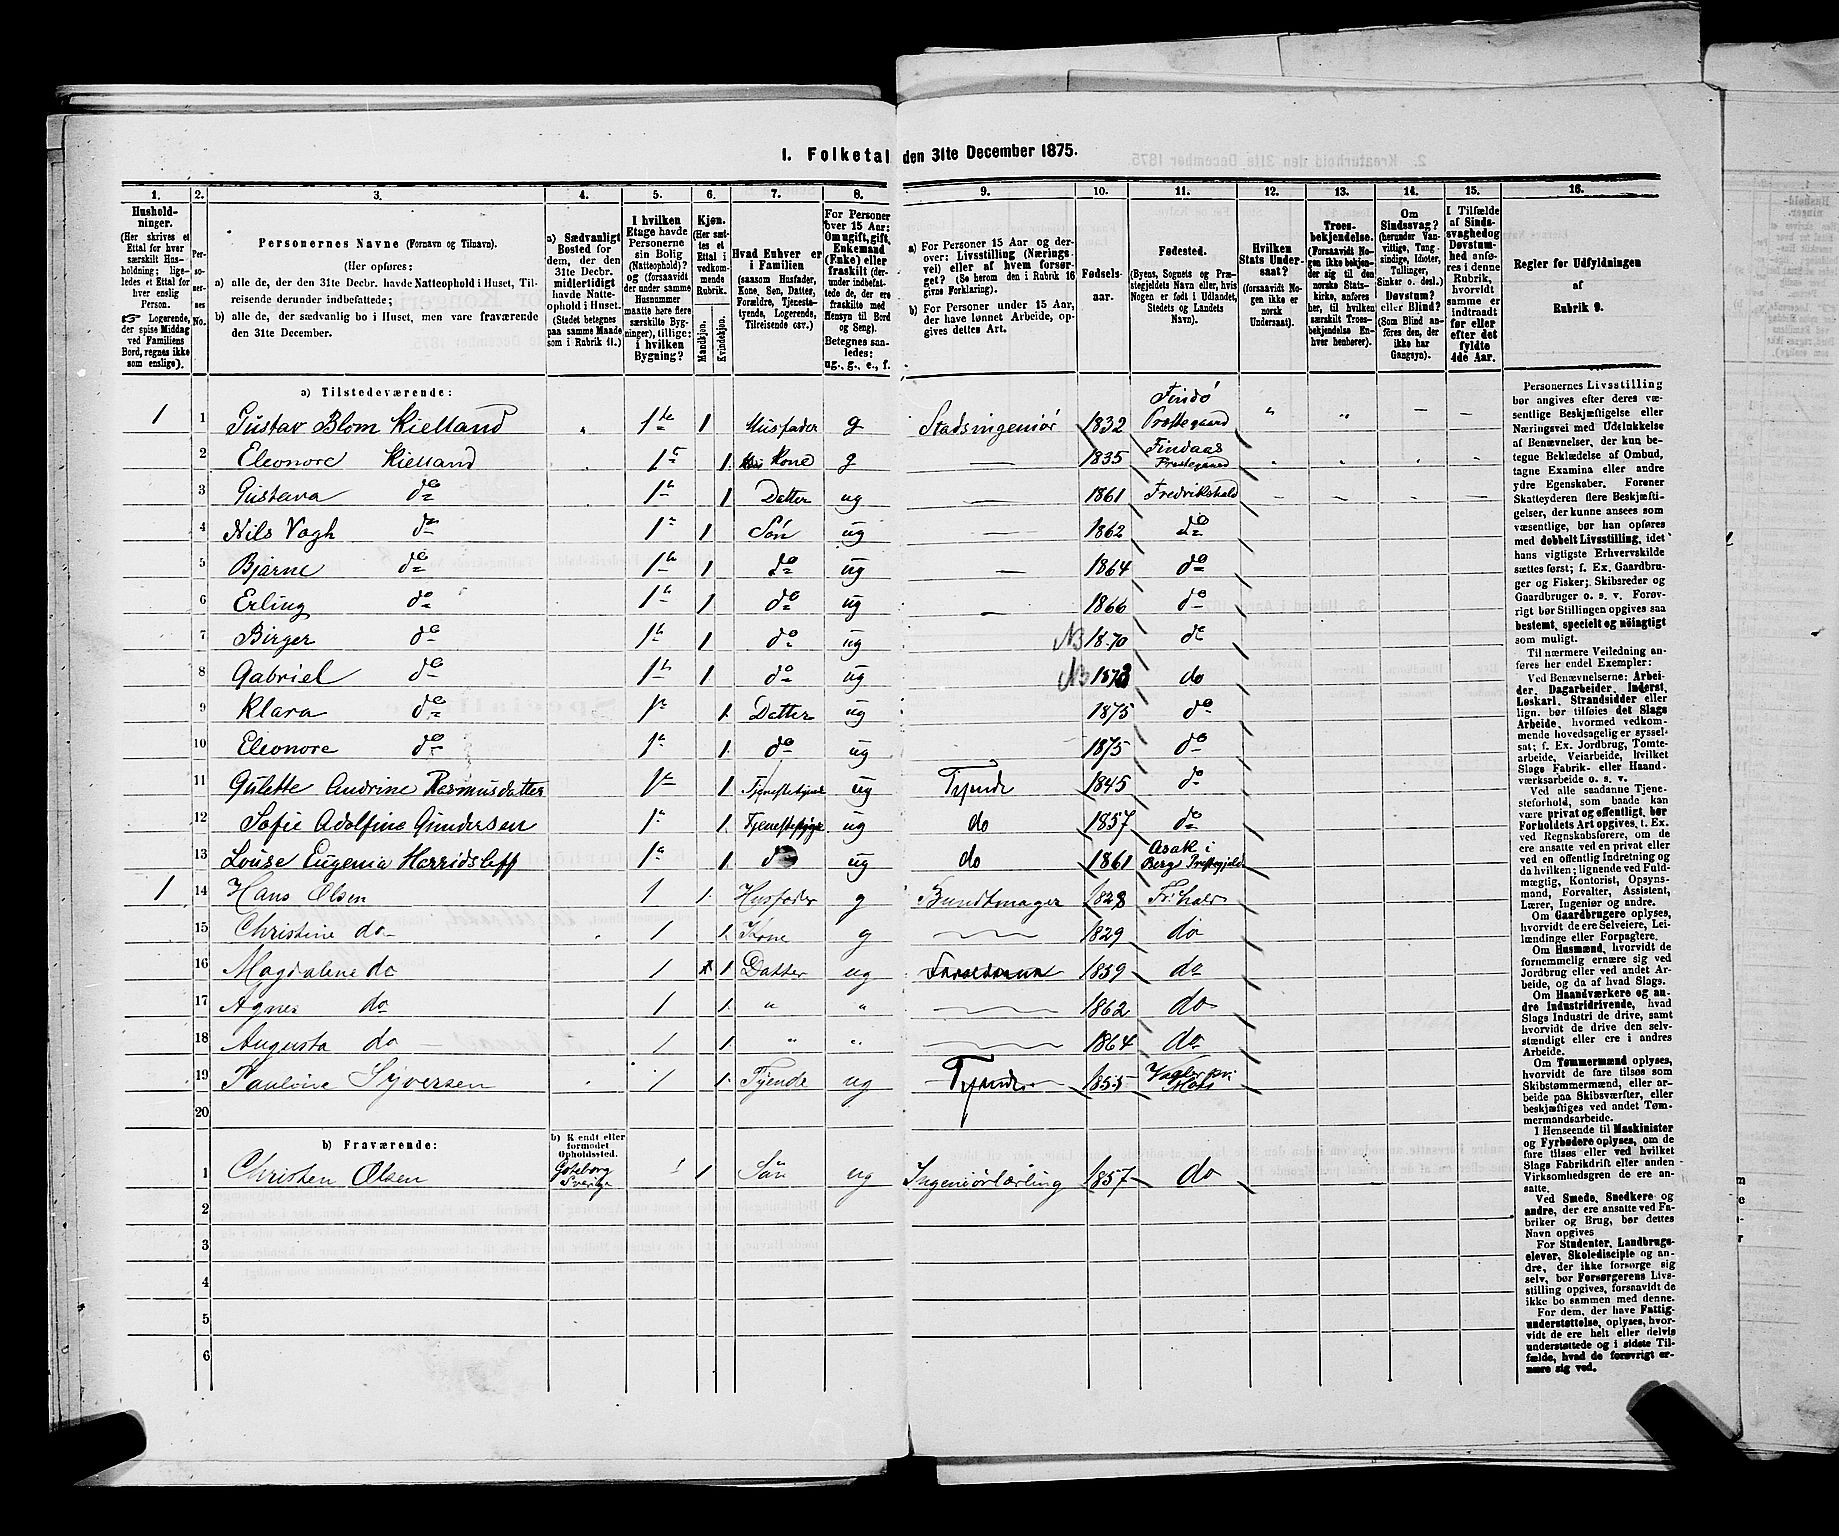 1. Folketal den 31te December 1875.
1. 2. 3. 4. 5. 6. 7. 8. 9. 10. 11. 12. 13. 14. 15. 16.
Husholdninger.
(Her skrives et Ettal for hver særskilt Husholdning; ligeledes et Ettal for hver enslig Person.
Logerende, der spise Middag ved Familiens Bord, regnes ikke som enslige).
Personernes No.
Personernes Navne (Fornavn og Tilnavn).
(Her opføres:
a) alle de, der den 31te Decbr. havde Natteophold i Huset, Tilreisende derunder indbefattede;
b) alle de, der sædvanlig bo i Huset, men vare fraværende den 31te December.
a) Sædvanligt Bosted for dem, der den 31te Decbr. midlertidigt havde Natteophold i Huset.
(Stedet betegnes paa samme Maade som i Rubrik 11.)
I hvilken Etage havde Personerne sin Bolig (Natteophold)?
og (forsaavidt der under samme Husnummer maatte høre flere særskilte Bygninger), tillige: i hvilken Bygning?
Kjøn.
(Her sættes et Ettal i vedkommende Rubrik.
Mandkjøn.
Kvindekjøn.
Hvad Enhver er i Familien
(saasom Husfader, Kone, Søn, Datter, Forældre, Tjenestetyende, Logerende, Tilreisende osv.)
For Personer over 15 Aar: Om ugift, gift, Enkemand (Enke) eller fraskilt (derunder indbefattede de, der ere fraskilte med Hensyn til Bord og Seng).
Betegnes saaledes:
ug., g., e., f.
a) For Personer 15 Aar og derover: Livsstilling (Næringsvei) eller af hvem forsørget? (Se herom den i Rubrik 16 givne Forklaring).
b) For Personer under 15 Aar, der have lønnet Arbeide, opgives dettes Art.
Fødselsaar.
Fødested.
(Byens, Sognets og Præstegjeldets Navn eller, hvis Nogen er født i Udlandet, Stedets og Landets Navn).
Hvilken Stats Undersaat?
(forsaavidt Nogen ikke er norsk Undersaat).
Troesbekjendelse.
(Forsaavidt Nogen ikke bekjender sig til den norske Statskirke, anføres her, til hvilken særskilt Troesbekjendelse Enhver henhører).
Om Sindssvag?
(herunder Vanvittige, Tungsindige, Idioter, Tullinger, Sinker o. desl.)
Døvstum? eller Blind?
(Som Blind anføres den, der ikke har Gangsyn).
I Tilfælde af Sindssvaghed og Døvstumhed anføres i denne Rubrik, hvorvidt samme er indtraadt før eller efter det fyldte 4de Aar.
Regler for Udfyldningen
af
Rubrik 9.
a) Tilstedeværende:
1 1 Gustav Blom Kielland 1te 1 Husfader g Stadsingeniør 1832 Findø Præstegaard
2 Eleonore Kielland 1 1 Kone g — 1835 Findaas Prestegaard
3 Gustava do 1 1 Datter ug — 1861 Fredrikshald
4 Nils Vogh do 1 1 Søn ug — 1862 do
5 Bjarne do 1 1 do ug — 1864 do
6 Erling do 1 1 do ug — 1866 do
7 Birger do 1 1 do ug NB 1870 do
8 Gabriel do 1 1 do ug NB 1873 do
9 Klara do 1 1 Datter ug 1875 do
10 Eleonore do 1 1 do ug 1875 do
11 Gulette Andrine Rasmusdatter 1 1 Tjenestetyende ug Tjende 1845 do
12 Sofie Adolfine Gundersen 1 1 Tjenestepige ug do 1857 do
13 Louise Eugenia Harridsleff 1 1 do ug do 1861 Asak i Berg Prestegjeld
1 14 Hans Olsen 1 1 Husfader g Bundtmager 1828 Fr:hald
15 Christine do 1 1 Kone g 1829 do
16 Magdalene do 1 1 Datter ug 1859 do
17 Agnes do 1 1 " " 1862 do
18 Augusta do 1 1 " " 1864 do
19 Pauline Syversen 1 1 Tjende ug Tjende 1855
20
b) Fraværende:
b) Kjendt eller formodet Opholdssted.
1 Christen Olsen Gøteborg Sverige 1 1 Søn ug Ingeniørlærling 1857 do
2
3
4
5
6
Personernes Livsstilling bør angives efter deres væsentlige Beskjæftigelse eller Næringsvei med Udelukkelse af Benævnelser, der kun betegne Beklædelse af Ombud, tagne Examina eller andre ydre Egenskaber. Forener Skatteyderen flere Beskjæftigelser, der kunne ansees som væsentlige, bør han opføres med dobbelt Livsstilling, idet hans vigtigste Erhvervskilde sættes først; f. Ex. Gaardbruger og Fisker; Skibsreder og Gaardbruger o. s. v. Forøvrigt bør Stillingen opgives saa bestemt, specielt og nøiagtigt som muligt.
Til nærmere Veiledning anføres her endel Exempler:
Ved Benævnelserne: Arbeider, Dagarbeider, Inderst, Løskarl, Strandsidder eller lign. bør tilføies det Slags Arbeide, hvormed vedkommende hovedsagelig er sysselsat; f. Ex. Jordbrug, Tomtearbeide, Veiarbeide, hvilket Slags Fabrik- eller Haandværksarbeide o. s. v.
Ved alle saadanne Tjenesteforhold, som baade kan være privat og offentligt, bør Forholdets Art opgives, t. Ex. ved Regnskabsførere, om de ere ansatte ved en privat eller ved en offentlig Indretning og da hvilken; lignende ved Fuldmægtig, Kontorist, Opsynsmand, Forvalter, Assistent, Lærer, Ingeniør og andre.
Om Gaardbrugere oplyses, hvorvidt de ere Selveiere, Leilændinge eller Forpagtere.
Om Husmænd, hvorvidt de fornemmelig ernære sig ved Jordbrug eller ved andet Arbeide, og da af hvad Slags.
Om Haandværkere og andre Industridrivende, hvad Slags Industri de drive, samt hvorvidt de drive den selvstændigt eller ere i andres Arbeide.
Om Tømmermænd oplyses, hvorvidt de fare tilsøs som Skibstømmermænd, eller arbeide paa Skibsværfter, eller beskjæftiges ved andet Tømmermandsarbeide.
I Henseende til Maskinister og Fyrbødere oplyses, om de fare tilsøs eller ved hvilket Slags Fabrikdrift eller anden Virksomhedsgren de ere ansatte.
Ved Smede, Snedkere og andre, der ere ansatte ved Fabriker og Brug, bør dettes Navn opgives
For Studenter, Landbrugselever, Skoledisciple og andre, der ikke forsørge sig selv, bør Forsørgerens Livsstilling opgives, forsaavidt de ikke bo sammen med denne.
For dem, der have Fattigunderstøttelse, oplyses, hvorvidt de ere helt eller delvis understøttede og i sidste Tilfælde, hvad de forøvrigt ernære sig ved.